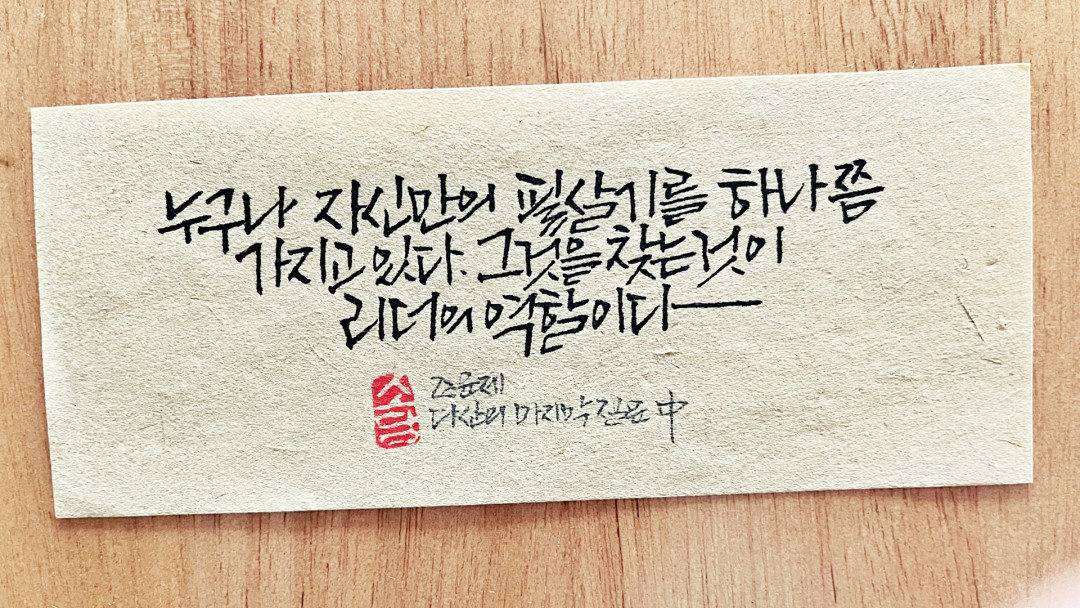 누구나 자신만의 필살기를 하나쯤
가지고 있다. 그것을 찾는것이
리더의 역할이다
조윤제
다산의 마지막 질문 中